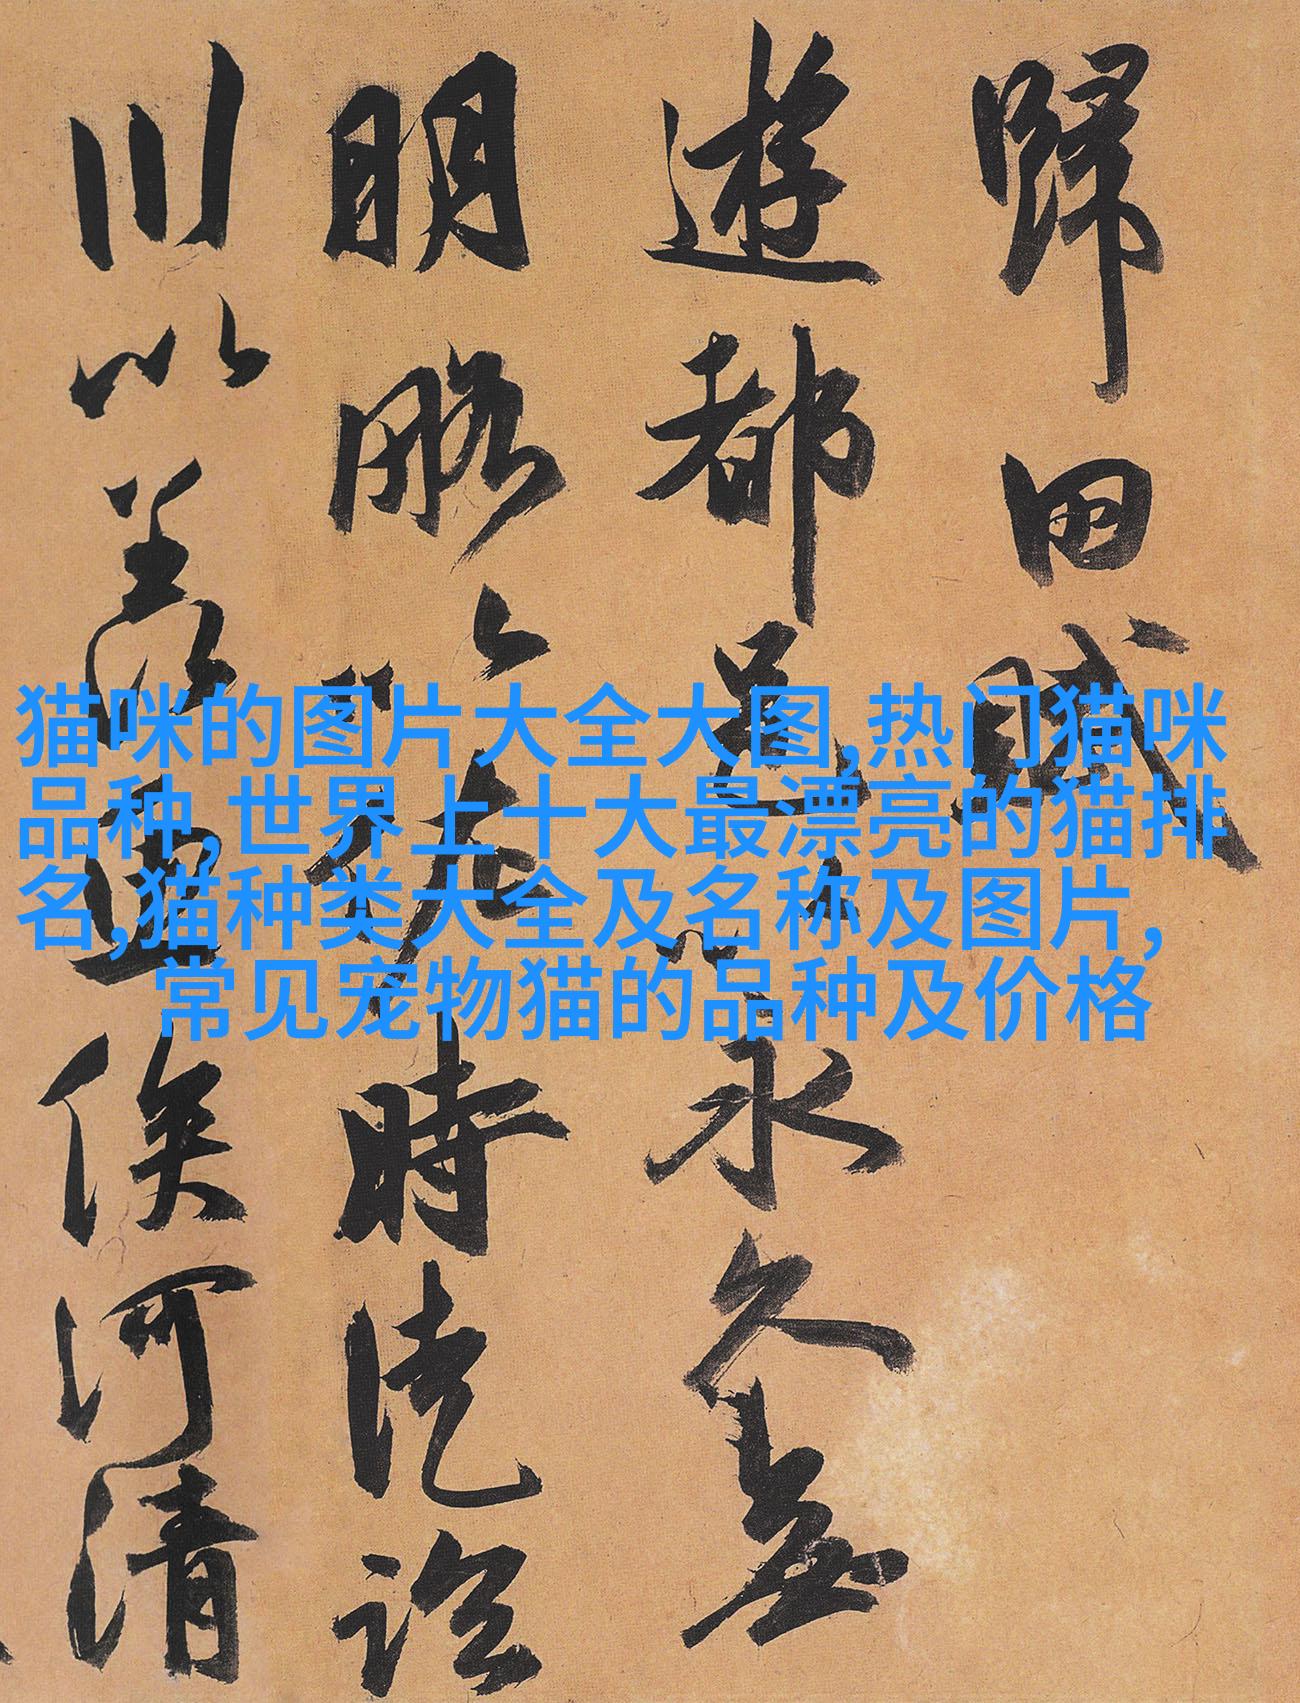 歸田賦
遊都邑以永久無
明略以佐時徒臨
川以羨魚俟河清
猫咪的图片大全大图,热门猫咪
品种,世界上十大最漂亮的猫排
名,猫种类大全及名称及图片,
常见宠物猫的品种及价格